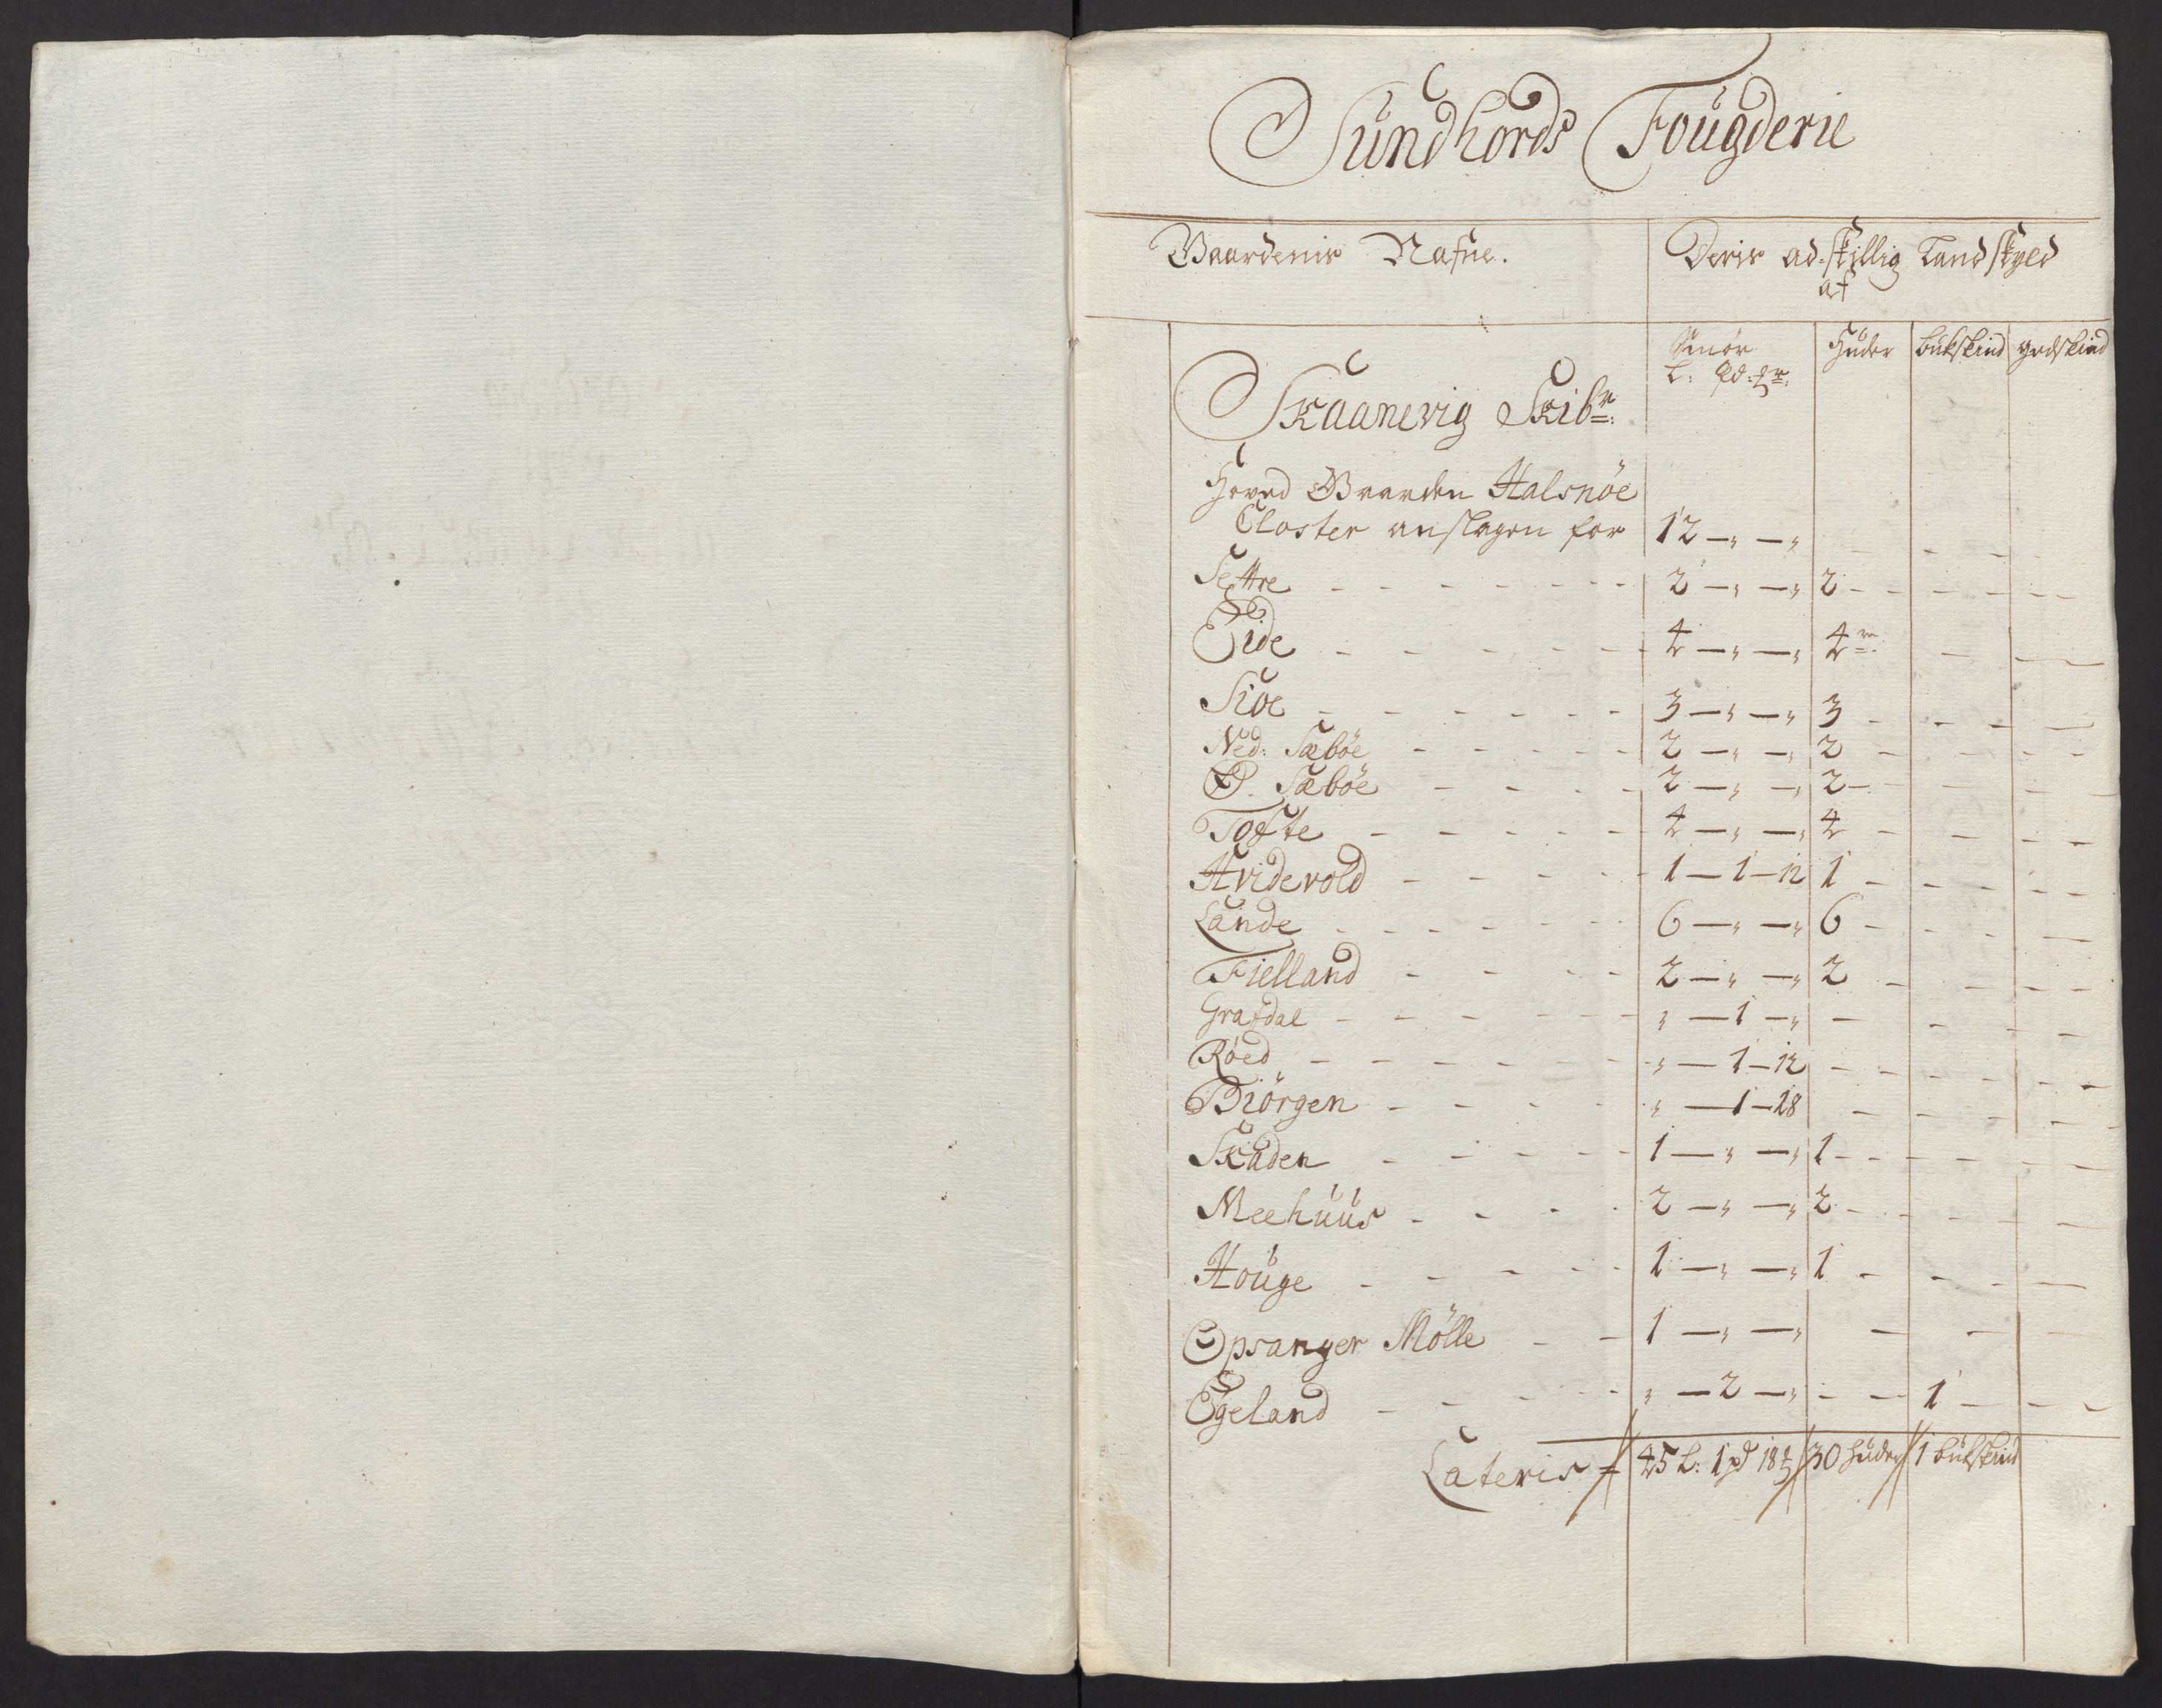 Sundhords Fougderie
Gaardenis Nafne. Deris ad-skillig Landskyld
af
Smør Huder bukskind gedskind
L: Pd: 
Skaanevig Skibr:
Hoved Gaarden Halsnöe
Closter anslagen for 12 — „ — „
Settre - - - - - - - 2 — „ — „ 2 - -
Eide - - - - - - 4 — „ — „ 4r
Siöe - - - - - - 3 — „ — „ 3 -
Ned: Sæböe - - - - 2 — „ — „ 2 -
Ö. Sæböe - - - - 2 — „ — „ 2 -
Tofte - - - - - 4 — „ — „ 4 -
Hvidevold - - - - - 1 — 1 — 12 1 -
Lande - - - - - - 6 — „ — „ 6 -
Fielland - - - - 2 — „ — „ 2 -
Grafdal - - - - - - „ — 1 — „ -
Röed - - - - - - „ — 1 — 12 - -
Biörgen - - - - „ — 1 — 18 -
Skaden - - - - - 1 — „ — „ 1 - -
Meehuus - - - - 2 — „ — „ 2 - -
Houge - - - - - 1 — „ — „ 1 -
Opsanger Mölle - - 1 — „ — „ -
Egeland - - - - - „ — 2 — „ - - 1 -
Lateris = 45 L: 1 pd 18 30 huder 1 bukskind